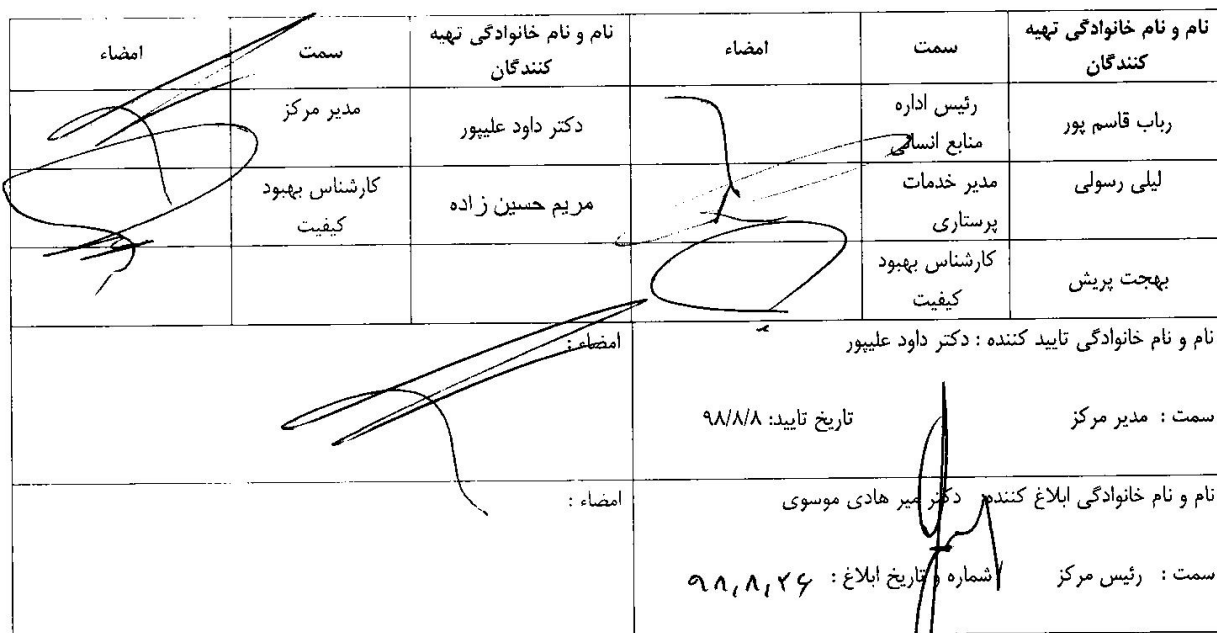 نام و نام خانوادگی تهیه کنندگان	سمت	امضاء	نام و نام خانوادگی تهیه کنندگان	سمت	امضاء
رباب قاسم پور	رئیس اداره منابع انسانی		دکتر داود علیپور	مدیر مرکز
لیلی رسولی	مدیر خدمات پرستاری		مریم حسین زاده	کارشناس بهبود کیفیت
بهجت پریش	کارشناس بهبود کیفیت
نام و نام خانوادگی تایید کننده : دکتر داود علیپور	امضاء :
سمت : مدیر مرکز	تاریخ تایید: ۹۸/۸/۸
نام و نام خانوادگی ابلاغ کننده دکتر میر هادی موسوی	امضاء :
سمت : رئیس مرکز	شماره و تاریخ ابلاغ : ۹۸,۸,۲۶